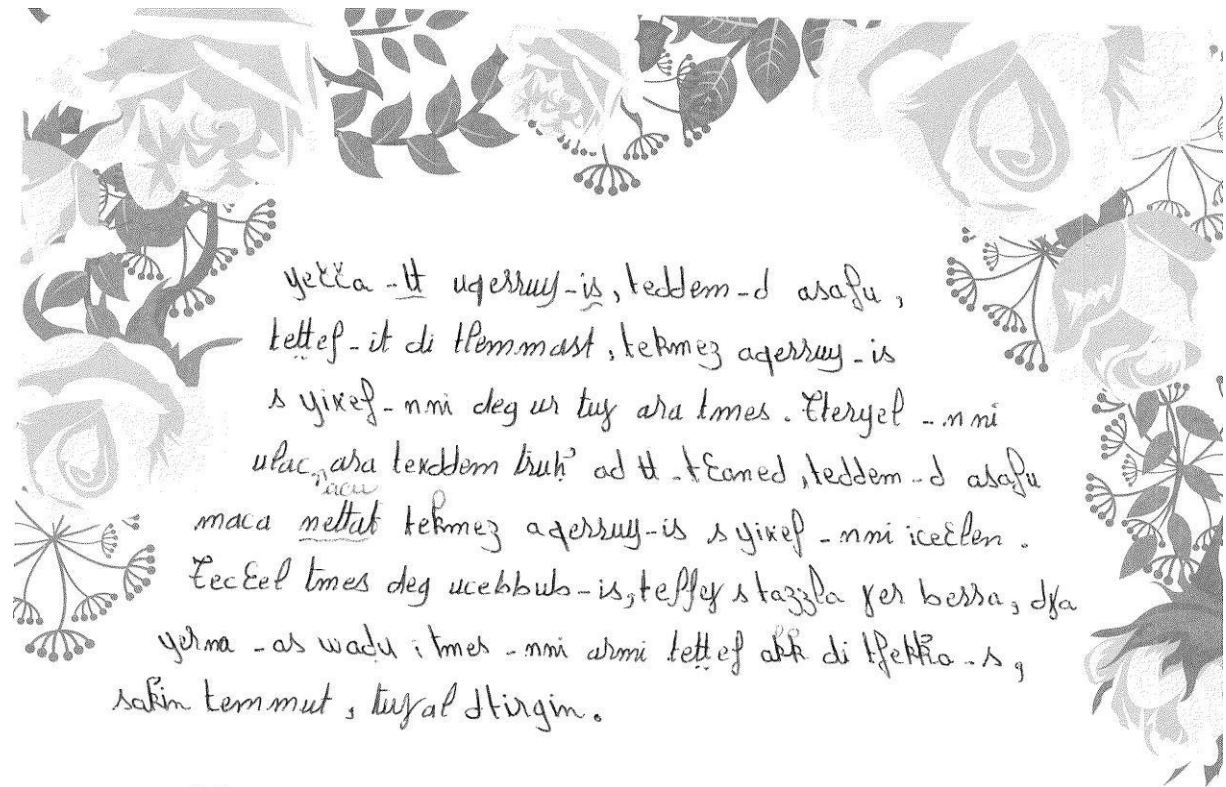 yečča-tt uqerruy-is, teddem-d asafu,
tettef-it di tlemmast, tekmez aqerruy-is
s yixef-nni deg ur tuɣ ara tmes. Tteryel-nni
ulac, acu ara texddem truḥ ad tt-tɛaned, teddem-d asafu
maca nettat tekmez aqerruy-is s yixef-nni iceɛlen.
Tecɛel tmes deg ucebbub-is, teffeɣ s tazzla ɣer berra, dɣa
yerna-as waḍu i tmes-nni armi teṭṭef akk di tfekka-s,
sakin temmut, tuɣal d tirgin.